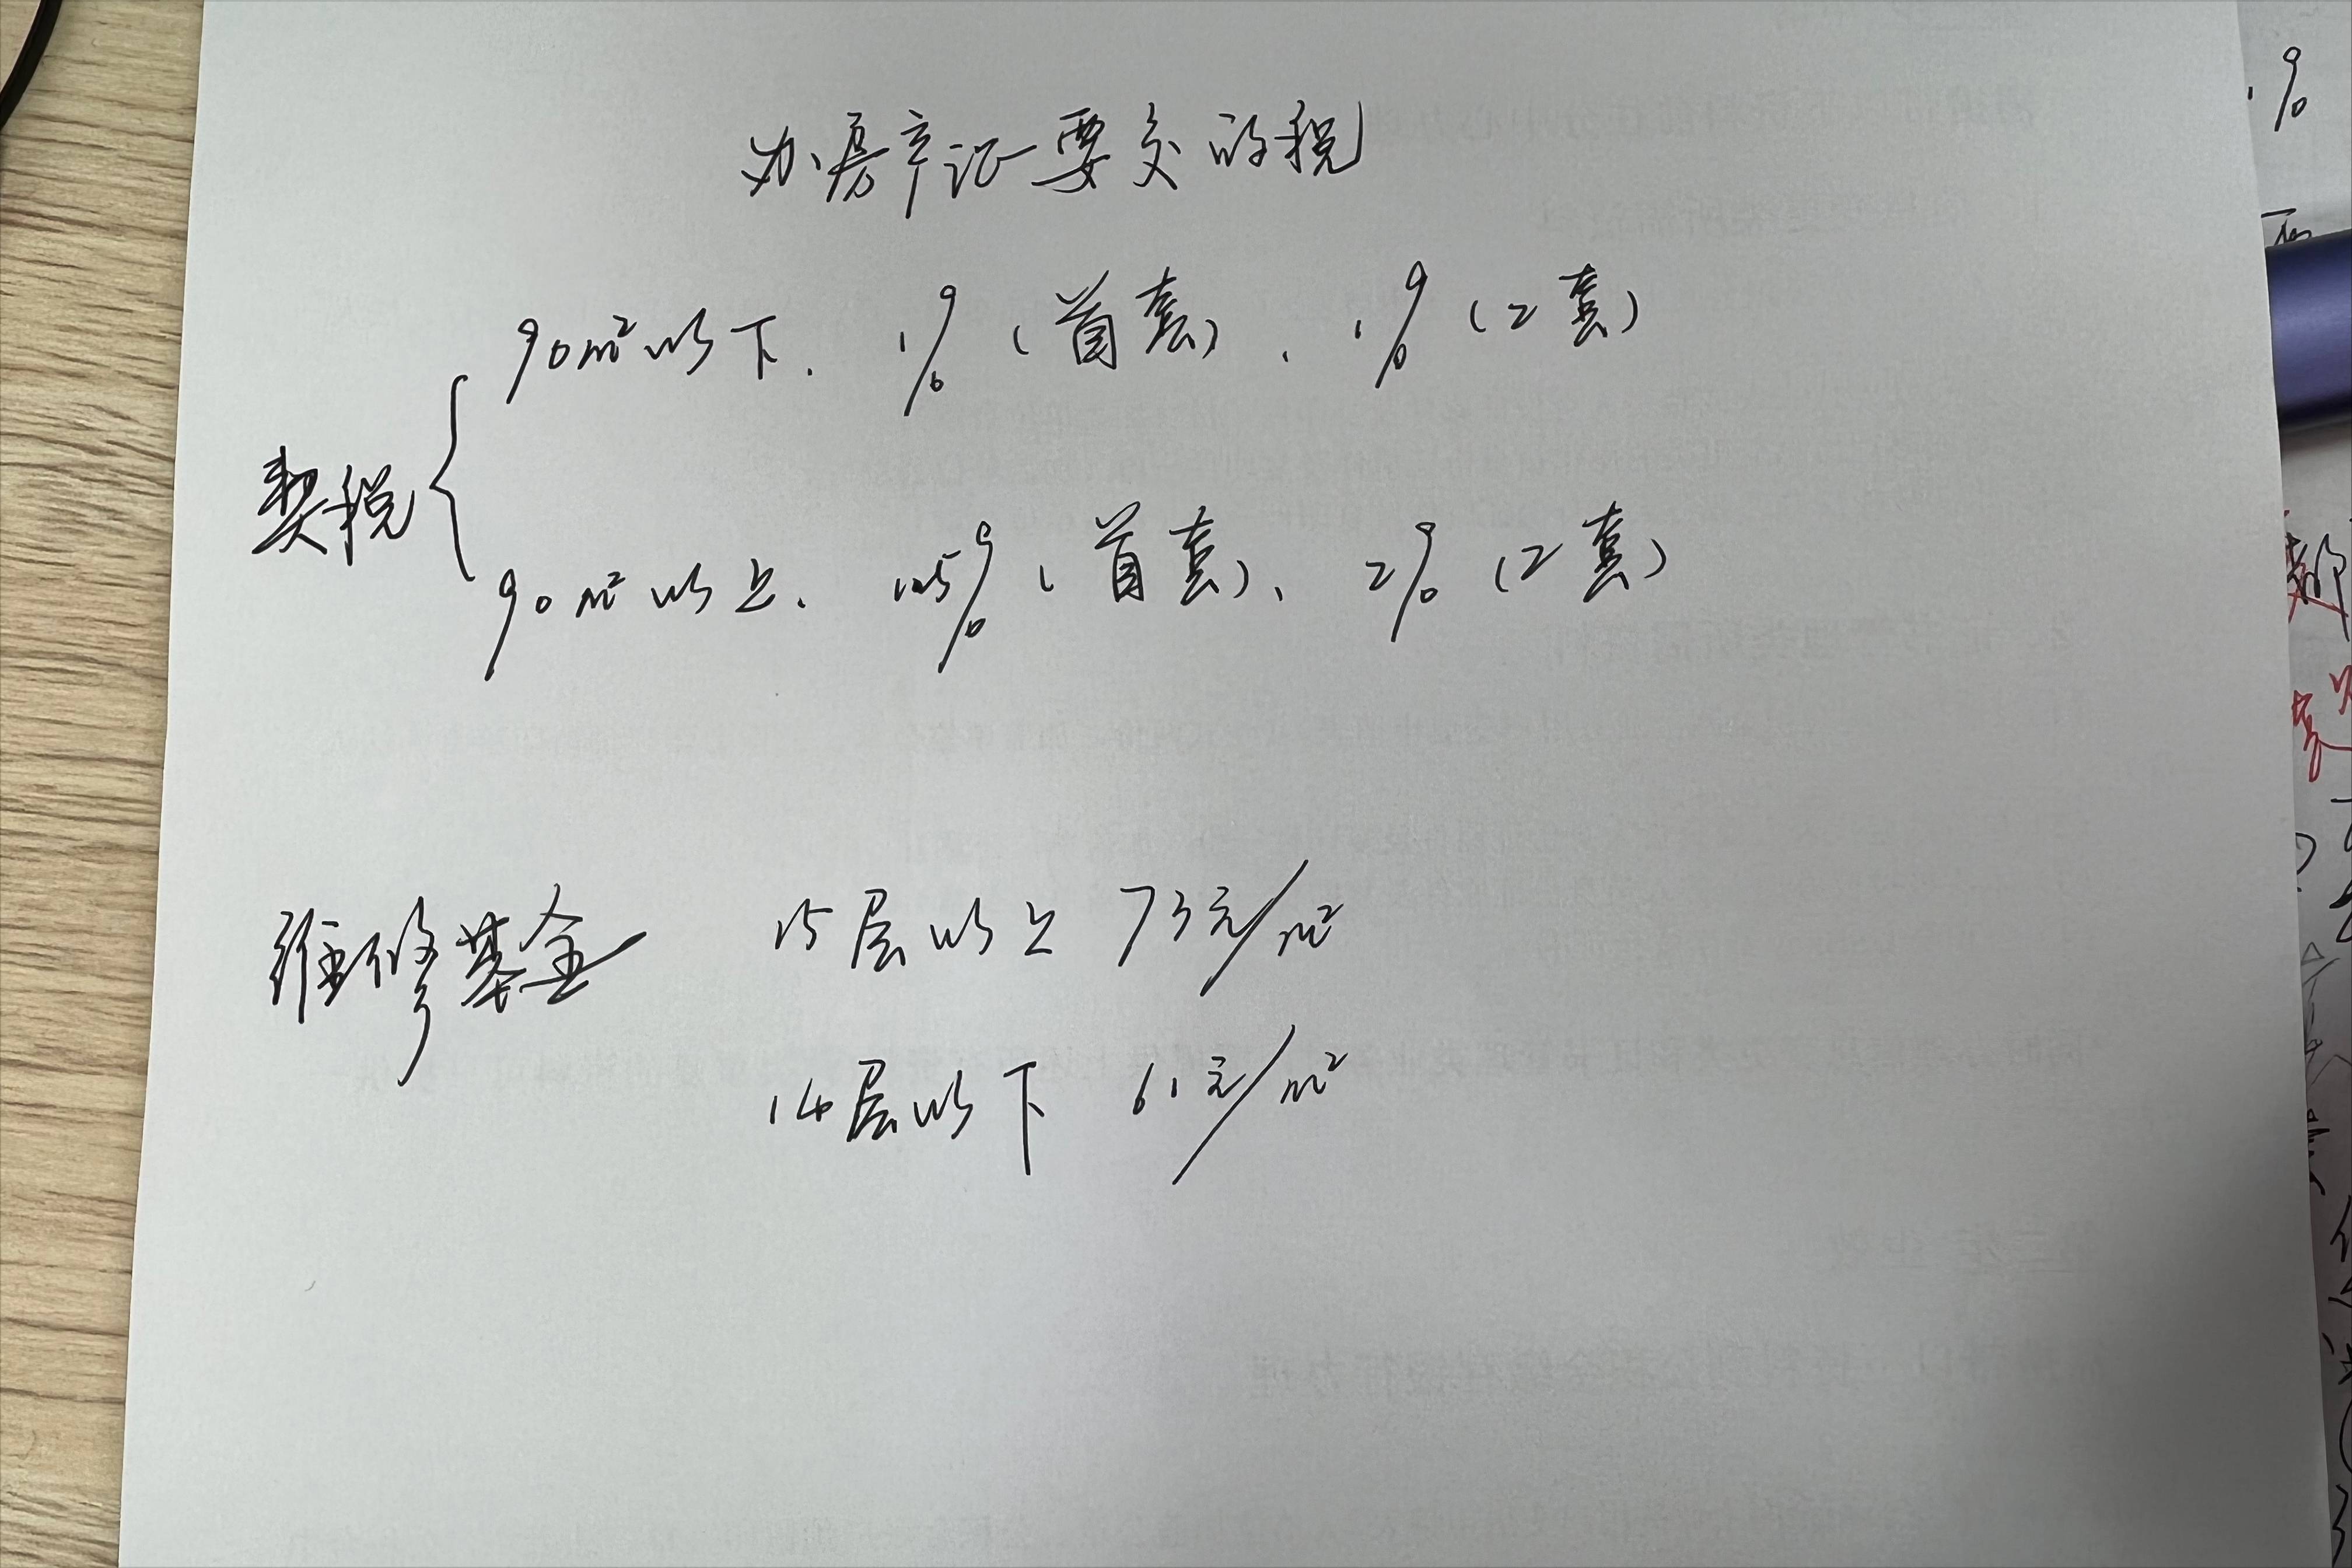 办房产证要交的税
90m²以下. 1%(首套)、1%(2套)
契税{
90m²以上. 1.5%(首套)、2%(2套)
维修基金 15层以上 73元/m²
14层以下 61元/m²
%
都